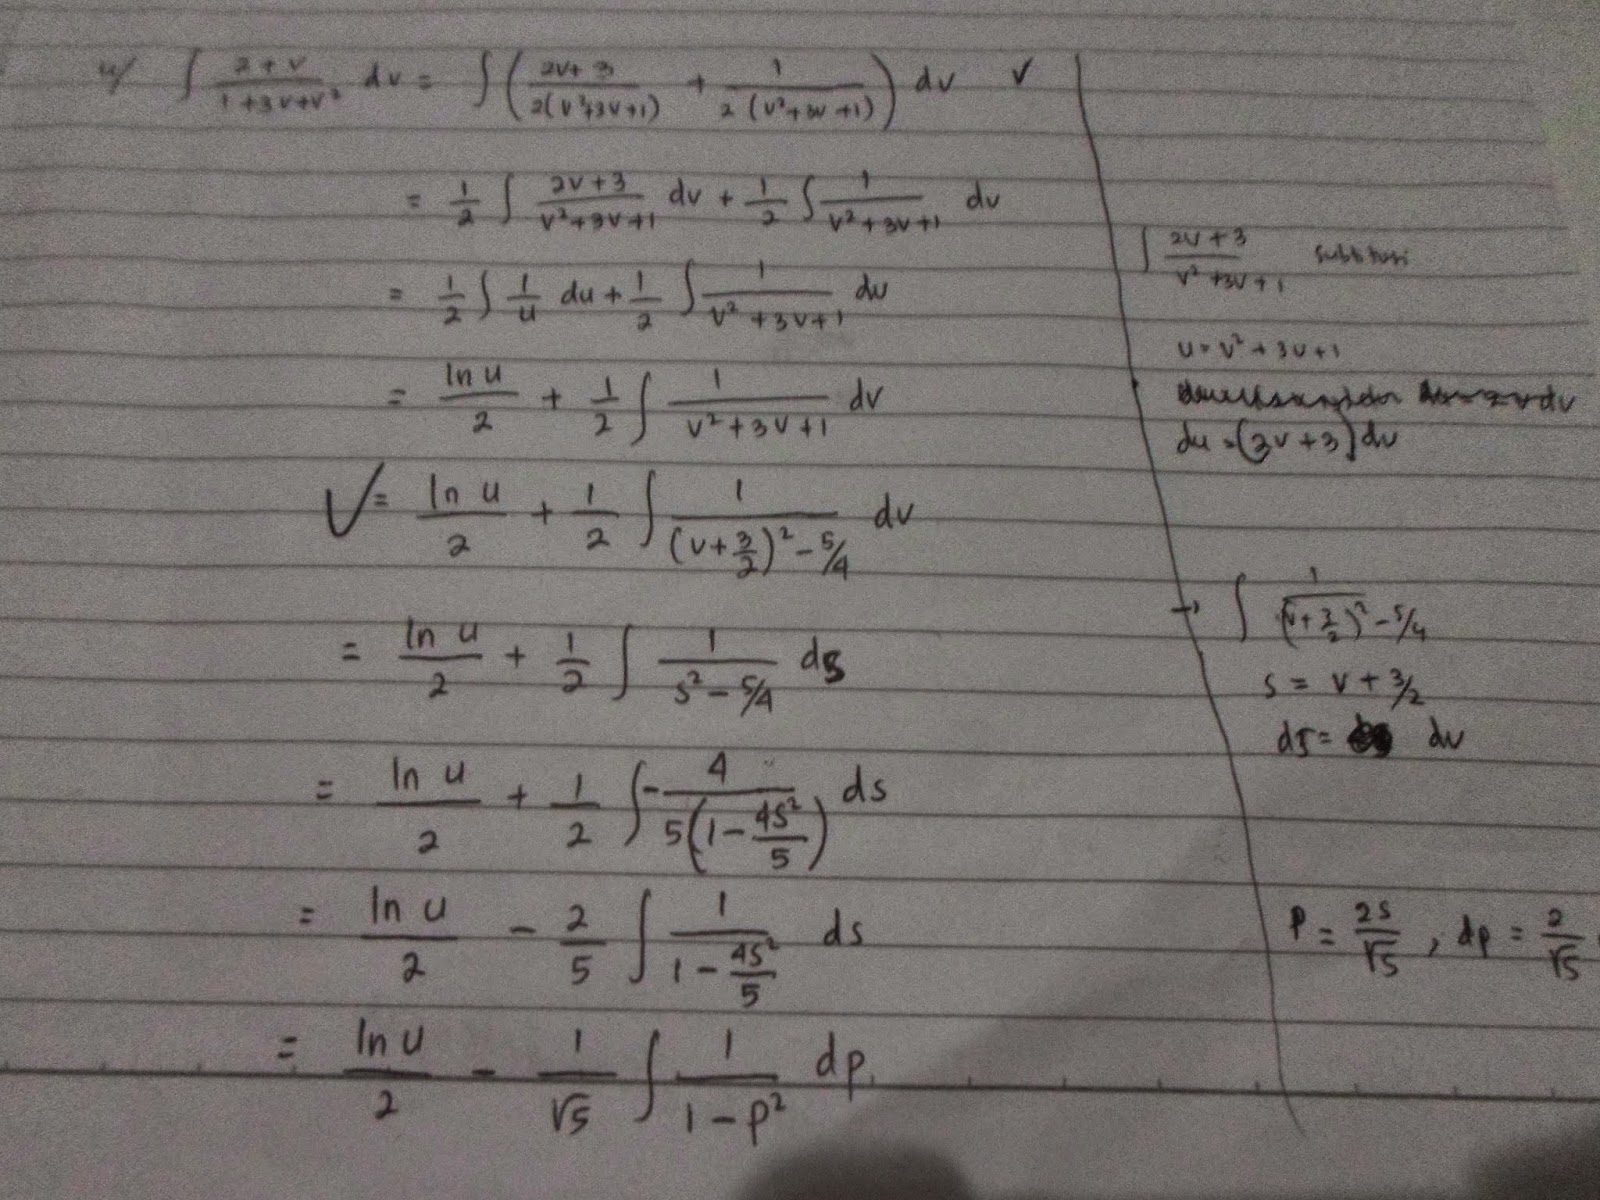 u/ ∫ (2+v)/(1+3v+v²) dv = ∫ ( (2v+3)/(2(v²+3v+1)) + 1/(2(v²+3v+1)) ) dv ✓
= 1/2 ∫ (2v+3)/(v²+3v+1) dv + 1/2 ∫ 1/(v²+3v+1) dv
= 1/2 ∫ 1/u du + 1/2 ∫ 1/(v²+3v+1) dv
= ln u/2 + 1/2 ∫ 1/(v²+3v+1) dv
✓ = ln u/2 + 1/2 ∫ 1/((v+3/2)² - 5/4) dv
= ln u/2 + 1/2 ∫ 1/(s² - 5/4) ds
= ln u/2 + 1/2 ∫ - 4/(5(1 - 4s²/5)) ds
= ln u/2 - 2/5 ∫ 1/(1 - 4s²/5) ds
= ln u/2 - 1/√5 ∫ 1/(1 - p²) dp
∫ (2v+3)/(v²+3v+1)
u = v²+3v+1
du = (2v+3) dv
→ ∫ 1/((v+3/2)² - 5/4)
s = v + 3/2
ds = dv
p = 2s/√5 , dp = 2/√5